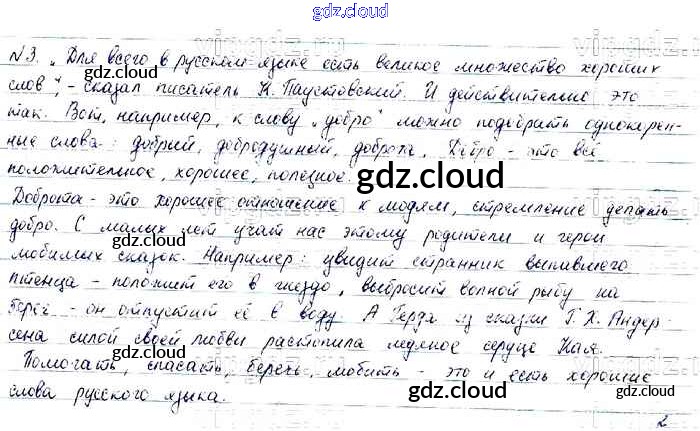 gdz.cloud
№3. „Для всего в русском языке есть великое множество хороших
слов", - сказал писатель К. Паустовский. И действительно это
так. Вот, например, к слову „добро" можно подобрать однокорен-
ные слова: добрый, добродушный, доброта. Добро - это всё
положительное, хорошее, полезное.
Доброта - это хорошее отношение к людям, стремление делать
добро. С малых лет учат нас этому родители и герои
любимых сказок. Например: увидит странник выпавшего
птенца - положит его в гнездо, выбросит волной рыбу на
берег - он отпустит её в воду. А Герда из сказки Г. Х. Андер
сена силой своей любви растопила ледяное сердце Кая.
Помогать, спасать, беречь, любить - это и есть хорошие
слова русского языка.
2
gdz.cloud
gdz.cloud
gdz.cloud
gdz.cloud
gdz.cloud
gdz.cloud
gdz.cloud
gdz.cloud
gdz.cloud